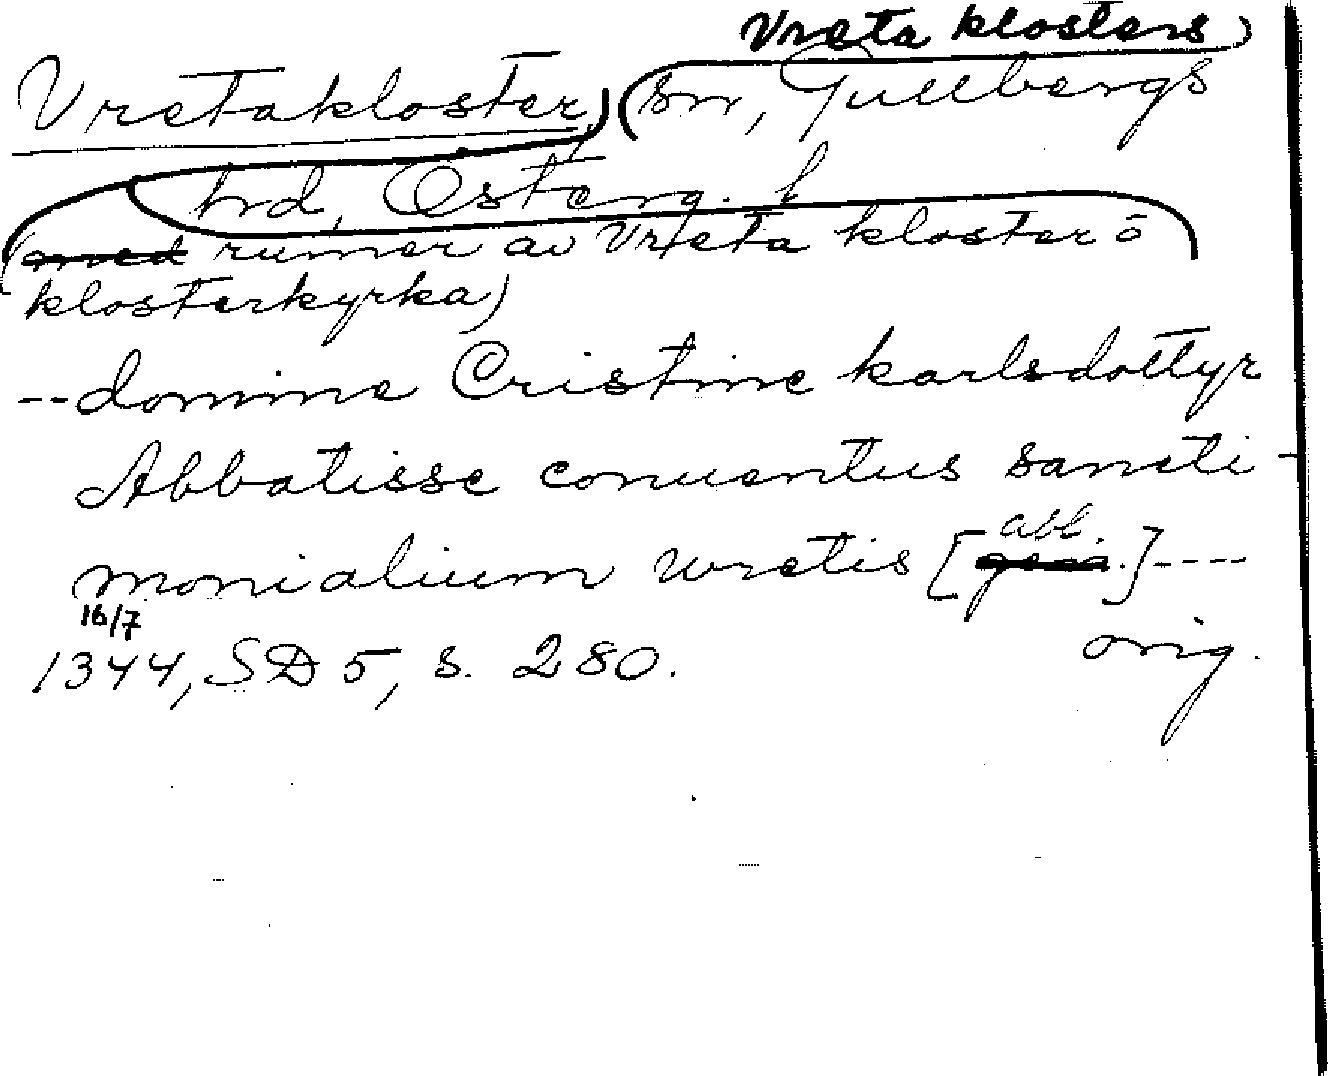 Vreta klosters
Vretakloster, sn, Gullbergs
hrd, Österg. l
(med ruiner av Vreta kloster o
klosterkyrka)
-- domine Cristine karlsdottyr
Abbatisse conuentus sancti-
monialium wretis [gen. abl.] ----
16/7
1344, SD 5, s. 280. orig.